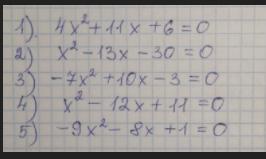 1). 4x²+11x+6=0
2) x²-13x-30=0
3) -7x²+10x-3=0
4) x²-12x+11=0
5) -9x²-8x+1=0